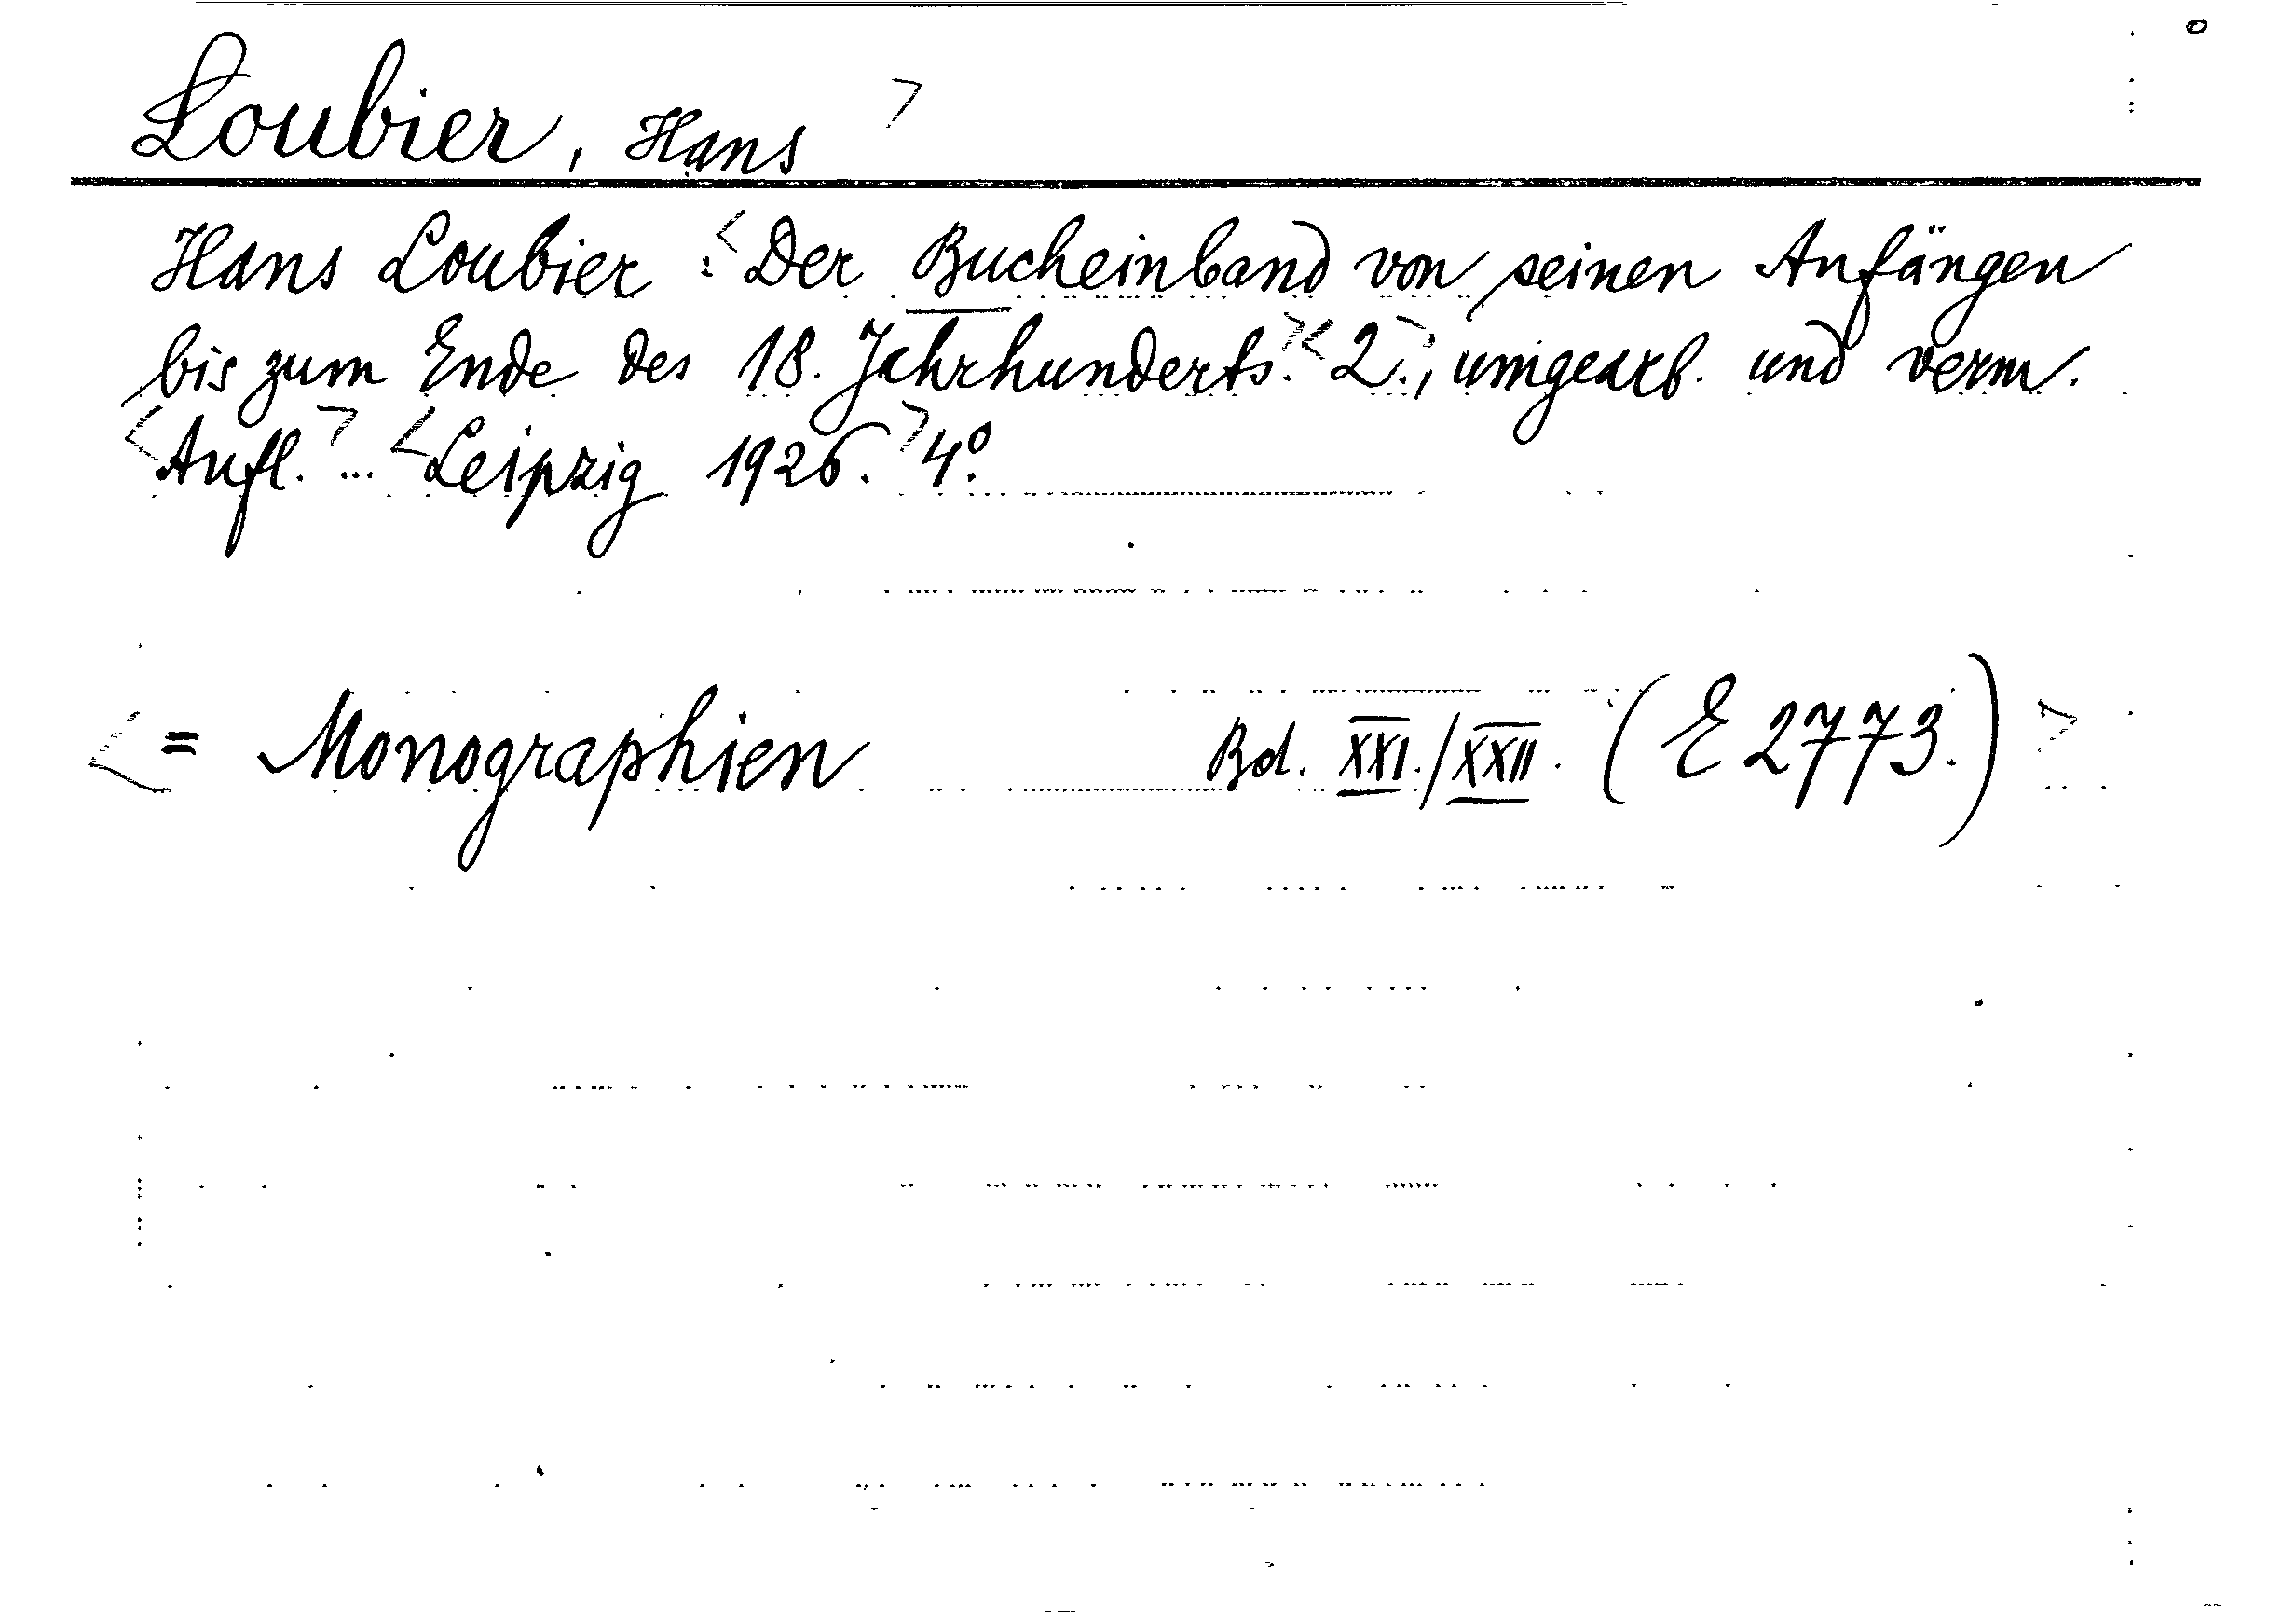 Loubier, Hans >
Hans Loubier : < Der Bucheinband von seinen Anfängen
bis zum Ende des 18. Jahrhunderts. > < 2. >, umgearb. und verm.
< Aufl. > ... < Leipzig 1926. > 4°.
< = Monographien Bd. XXI./XXII. (E 2773.) >